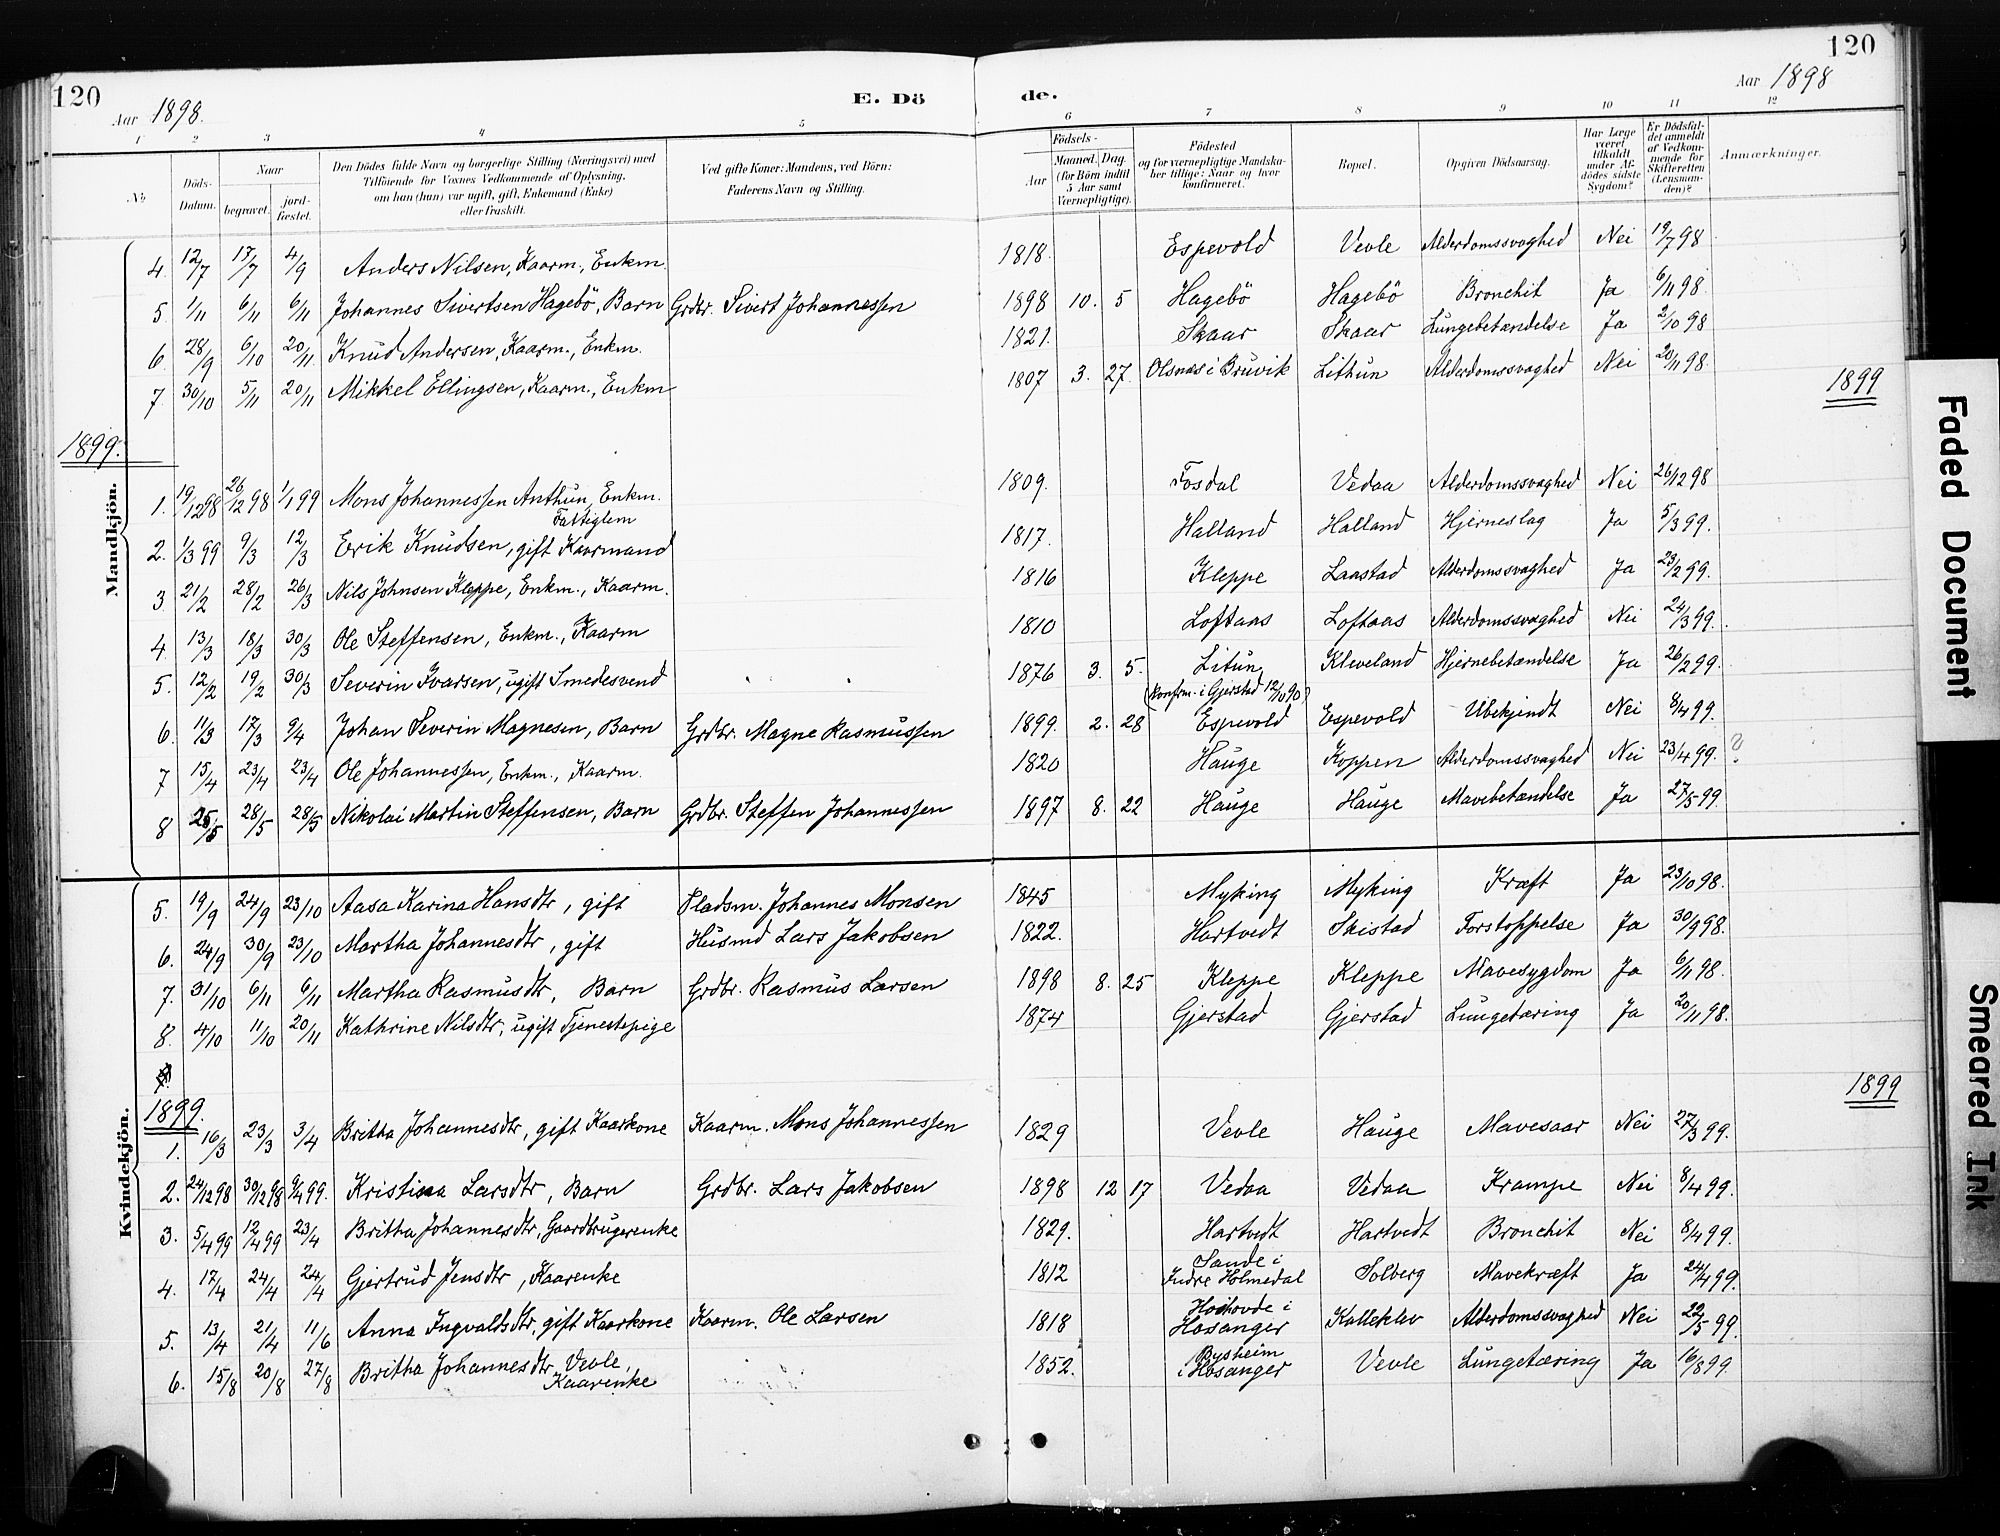 120
Aar 1898.
E. Dö
de.
Aar 1898
120
1 2 3 4 5 6 7 8 9 10 11 12
No
Döds-Datum.
Naar
begravet.
jord-fæstet.
Den Dödes fulde Navn og borgerlige Stilling (Næringsvei) med
Tilföiende for Voxnes Vedkommende af Oplysning,
om han (hun) var ugift, gift, Enkemand (Enke)
eller fraskilt.
Ved gifte Koner: Mandens, ved Börn:
Faderens Navn og Stilling.
Födsels-
Aar
Maaned. Dag.
(for Börn indtil
5 Aar samt
Værnepligtige).
Födested
og for værnepligtige Mandska-
ber tillige: Naar og hvor
konfirmeret.
Bopæl.
Opgiven Dödsaarsag.
Har Læge
været
tilkaldt
under Af-
dödes sidste
Sygdom?
Er Dödsfal-
det anmeldt
af Vedkom-
mende for
Skifteretten
(Lensman-
den)?
Anmærkninger.
Mandkjön.
4. 12/7 17/7 4/9 Anders Nilsen, Kaarm., Enkm. 1818. Espevold Vevle Alderdomssvaghed Nei 19/7 98
5. 1/11 6/11 6/11 Johannes Sivertsen Hagebö, Barn Grdbr. Sivert Johannessen 1898 10. 5 Hagebö Hagebö Bronchit Ja 6/11 98.
6. 28/9 6/10 20/11 Knud Andersen, Kaarm., Enkm. 1821. Skaar Skaar Lungebetændelse Ja 2/10 98
7. 30/10 5/11 20/11 Mikkel Ellingsen, Kaarm., Enkm 1807 3. 27. Olsnæs i Bruvik Lithun Alderdomssvaghed Nei 20/11 98.
1899
1899.
1. 19/12 98 26/12 98 1/1 99 Mons Johannessen Anthun, Enkm. Fattiglem 1809. Fosdal Vedaa Alderdomssvaghed Nei 26/12 98
2. 1/3 99 9/3 12/3 Erik Knudsen, gift Kaarmand 1817. Halland Halland Hjerneslag Ja 5/3 99.
3 21/2 28/2 26/3 Nils Johnsen Kleppe, Enkm., Kaarm. 1816 Kleppe Laastad Alderdomssvaghed Ja 23/2 99.
4. 13/3 18/3 30/3 Ole Steffensen, Enkm., Kaarm 1810 Loftaas Loftaas Alderdomssvaghed Nei 24/3 99.
5. 12/2 19/2 30/3 Severin Ivarsen, ugift Smedesvend 1876 3. 5. Litun Kleveland Hjernebetændelse Ja 26/2 99.
(konfrm. i Gjerstad 12/10 90)
6. 11/3 17/3 9/4 Johan Severin Magnesen, Barn Grdbr. Magne Rasmussen 1899. 2. 28 Espevold Espevold Ubekjendt Nei 8/4 99.
7 15/4 23/4 23/4 Ole Johannessen, Enkm., Kaarm. 1820 Hauge Koppen Alderdomssvaghed Nei 23/4 99. ?
8 25/5 28/5 28/5 Nikolai Martin Steffensen, Barn Grdbr. Steffen Johannessen 1897 8. 22 Hauge Hauge Mavebetændelse Ja 27/5 99.
Kvindekjön.
5. 19/9 24/9 23/10 Aasa Karina Hansdtr, gift Pladsm. Johannes Monsen 1845 Myking Myking Kræft Ja 23/10 98.
6. 24/9 30/9 23/10 Martha Johannesdtr, gift Husmd Lars Jakobsen 1822. Hartvedt Skistad Forstoppelse Ja 30/9 98.
7. 31/10 6/11 6/11 Martha Rasmusdtr, Barn Grdbr. Rasmus Larsen 1898 8. 25 Kleppe Kleppe Mavesygdom Ja 6/11 98.
8. 4/10 11/10 20/11 Kathrine Nilsdtr, ugift Tjenestepige 1874 Gjerstad Gjerstad Lungetæring Ja 20/11 98.
1899
1899.
1. 16/3 23/3 3/4 Britha Johannesdtr, gift Kaarkone Kaarm. Mons Johannessen 1829 Vevle Hauge Mavesaar Nei 27/3 99.
2. 24/12 98 30/12 98 9/4 99. Kristina Larsdtr, Barn Grdbr. Lars Jakobsen 1898 12 17 Vedaa Vedaa Krampe Nei 8/4 99.
3. 5/4 99 12/4 99 23/4 Britha Johannesdtr, Gaardbrugerenke 1829. Hartvedt Hartvedt Bronchit Nei 8/4 99.
4. 17/4 24/4 24/4 Gjertrud Jensdtr, Kaarenke 1812 Sande i Indre Holmedal Solberg Mavekræft Ja 24/4 99.
5. 13/4 21/4 11/6 Anna Ingvaldsdtr, gift Kaarkone Kaarm. Ole Larsen 1818 i Hosanger Kalleklev Alderdomssvaghed Nei 22/5 99.
6. 15/8 20/8 27/8 Britha Johannesdtr, Vevle, Kaarenke 1852. Bysheim i Hosanger Vevle Lungetæring Ja 16/8 99.
Faded Document
Smeared Ink